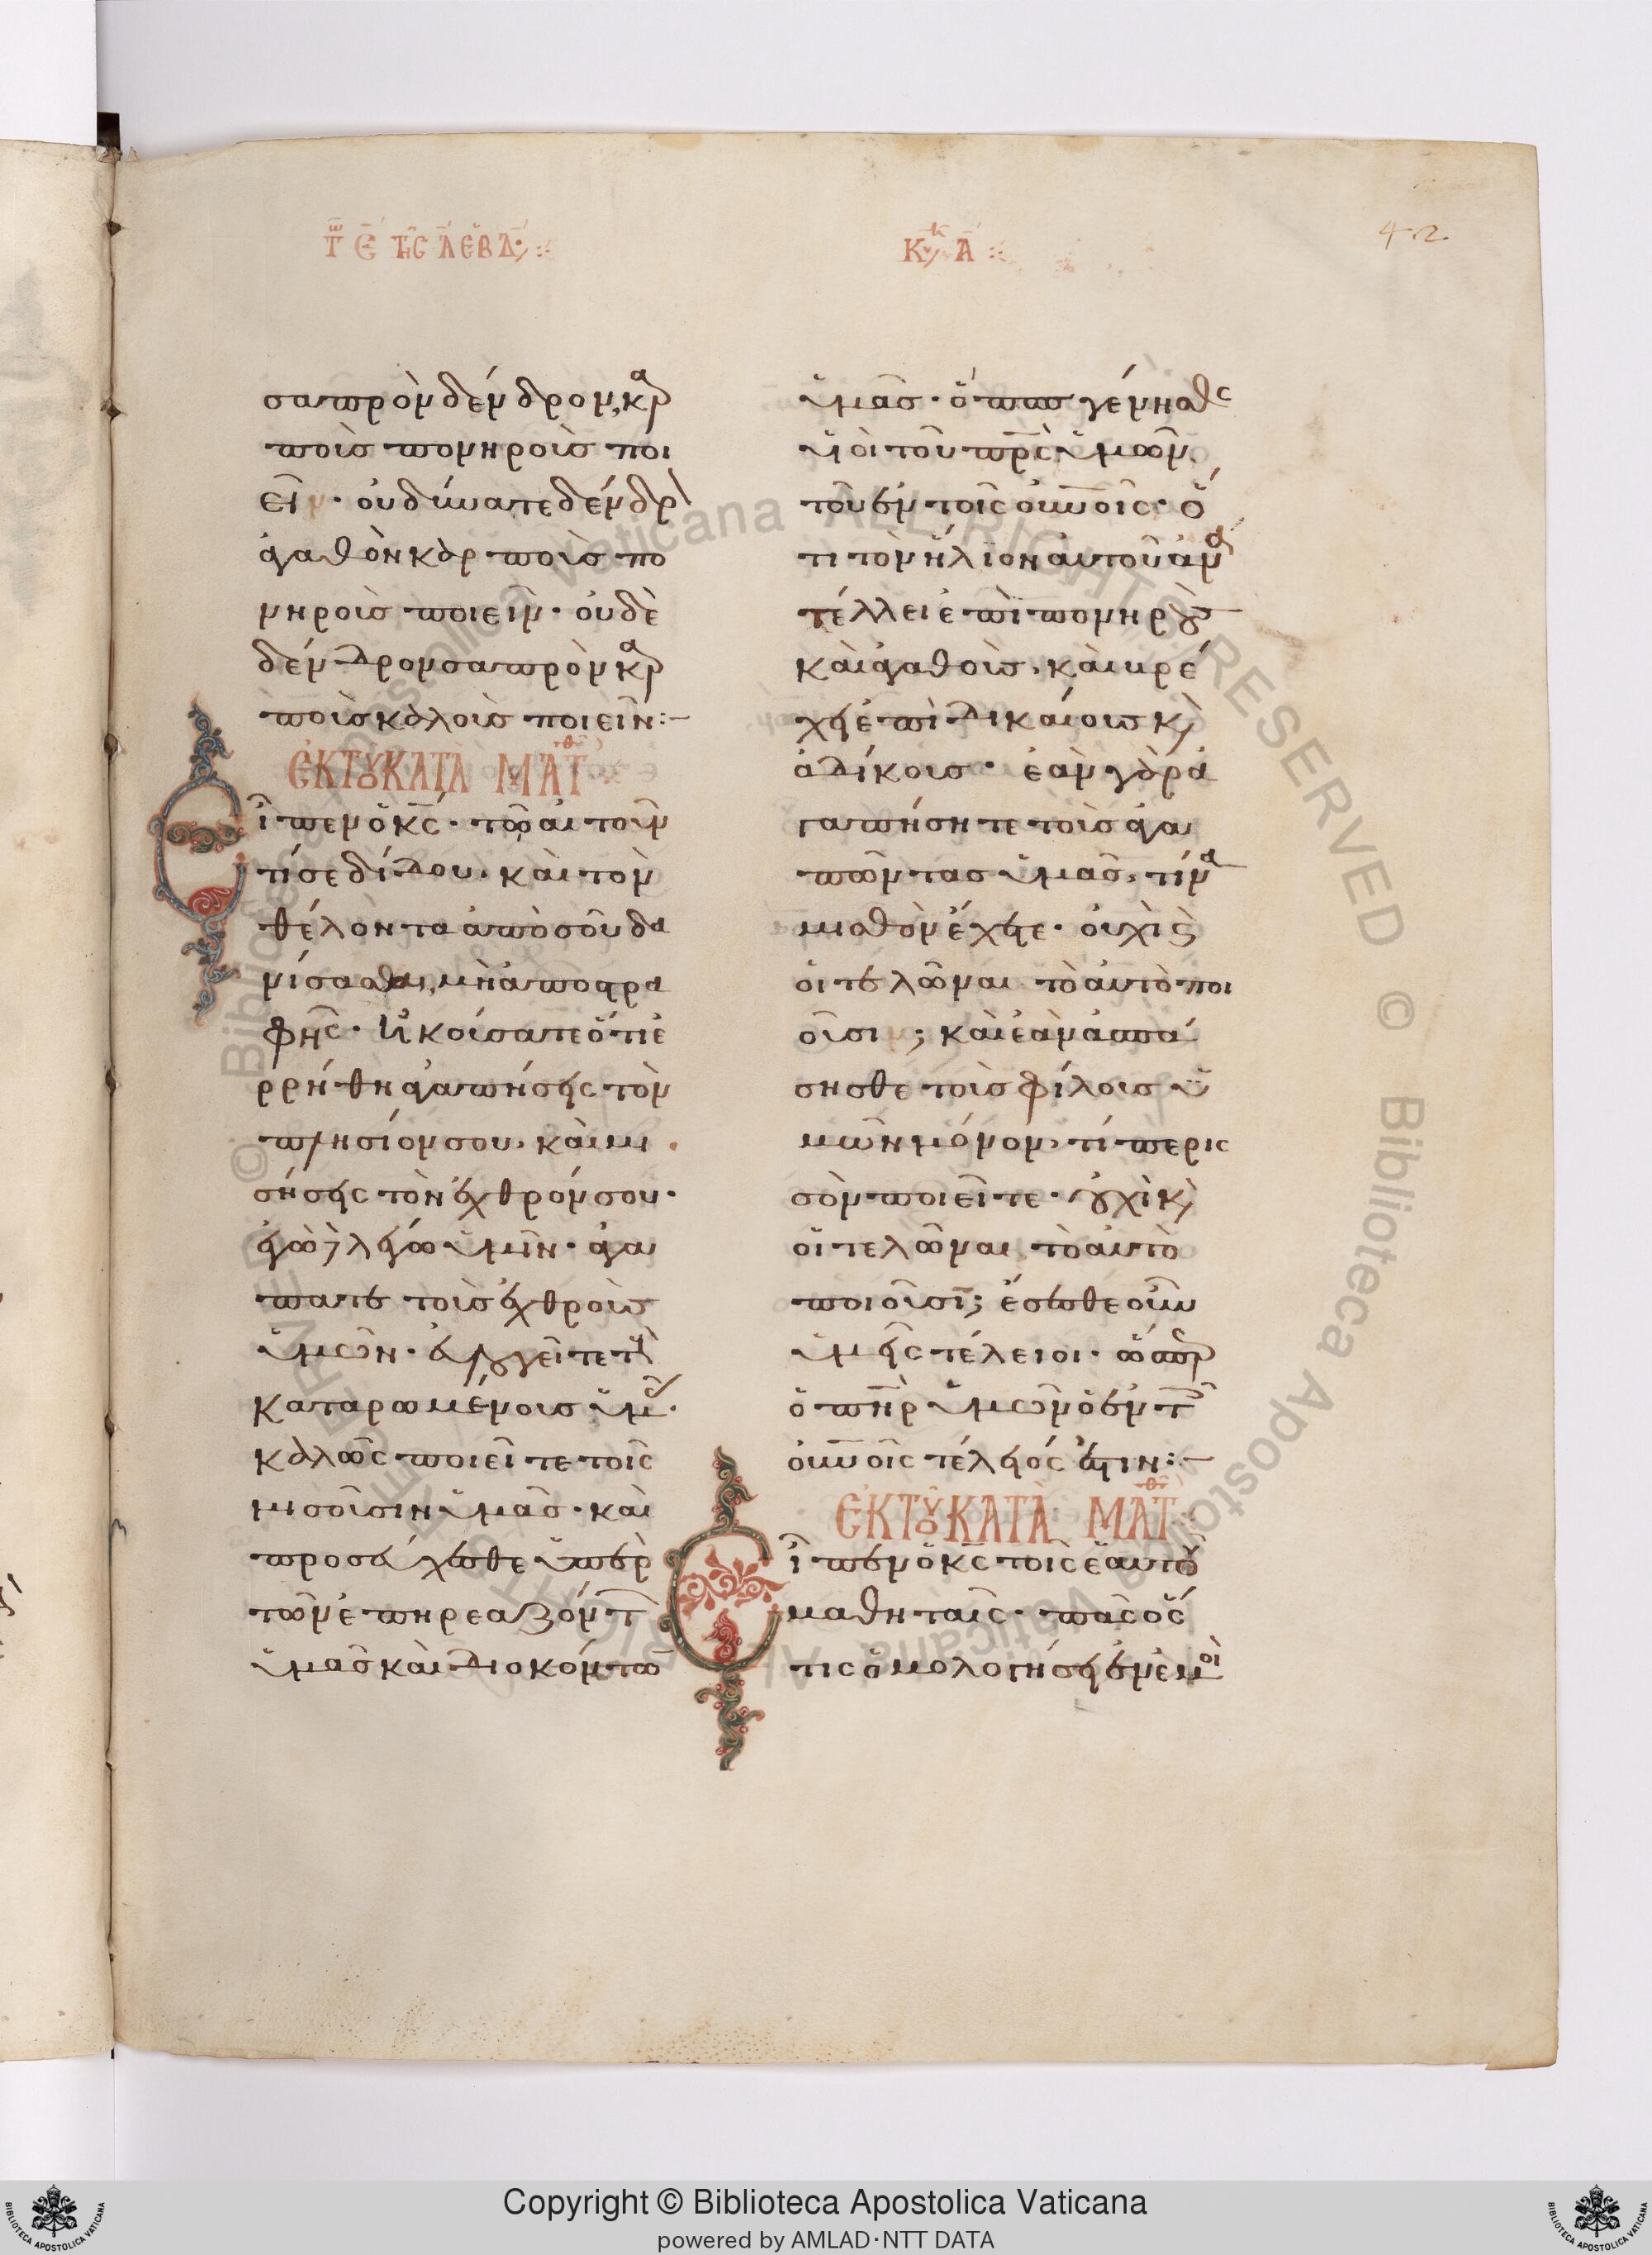 Τῶ Ϛ̅ τῆς α̅ εβδ
Κυ̅ρ Α̅
42
σαπρὸν δένδρον, κᾳρ
ποὺς πονηροὺς ποι
εῖν· οὐ δύναται δένδρ
ἀγαθὸν καρποὺς πο
νηροὺς ποιεῖν· οὐδὲ
δένδρον σαπρὸν καρ
ποὺς καλοὺς ποιεῖν:–
ἐκ τοῦ κατὰ Ματθ
Εἶπεν ὁ κ̅ς̅· τῶ αἰτοῦν
τί σε δίδου, καὶ τὸν
θέλοντα ἀπὸ σοῦ δα
νίσασθαι, μὴ ἀποστρα
φῆς· Ἠκούσατε ὅτι ἐ
ρρήθη ἀγαπήσεις τὸν
πλησίον σου, καὶ μι
σήσεις τὸν ἐχθρόν σου·
ἐγὼ λέγω ὑμῖν· ἀγα
πᾶτε τοὺς ἐχθροὺς
ὑμῶν· εὐλογεῖτε τοὺς
καταρωμένους ὑμᾶς·
καλῶς ποιεῖτε τοῖς
μισοῦσιν ὑμᾶς· καὶ
προσεύχεσθε ὑπὲρ
τῶν ἐπηρεαζόντων
ὑμᾶς καὶ διοκόντω
ὑμᾶς· ὅπως γένησθε
υἱοὶ τοῦ π̅ρ̅ς̅ ὑμῶν,
τοῦ ἐν τοῖς οὐ̅ν̅οῖς· ὅ
τι τὸν ἥλιον αὐτοῦ ἀνα
τέλλει ἐπὶ πονηροὺς
καὶ ἀγαθοὺς, καὶ βρέ
χει ἐπὶ δικαίους κ̀
ἀδίκους· ἐὰν γὰρ ἀ
γαπήσητε τοὺς ἀγα
πῶντας ὑμᾶς, τίνα
μισθὸν ἔχετε· οὐχὶ ϗ
οἱ τελῶναι τὸ αὐτὸ ποι
οῦσι; καὶ ἐὰν ἀσπά
σησθε τοὺς φίλους ὑ
μῶν μόνον, τί περισ
σὸν ποιεῖτε· οὐχὶ κ̀
οἱ τελῶναι τὸ αὐτὸ
ποιοῦσι; ἔσεσθε οὖν
ὑμεῖς τέλειοι· ὥσπερ
ὁ π̅η̅ρ̅ ὑμῶν ὁ ἐν τοῖς
οὐ̅ν̅οῖς τέλειός ἐστιν:–
ἐκ τοῦ κατὰ Ματθ
Εἶπεν ὁ κ̅ς̅ τοῖς ἑαυτοῦ
μαθηταῖς· πᾶς ὅς
τις ὁμολογήσει ἐν ἐμοὶ
Copyright © Biblioteca Apostolica Vaticana
powered by AMLAD·NTT DATA
© Biblioteca Apostolica Vaticana ALL RIGHTS RESERVED